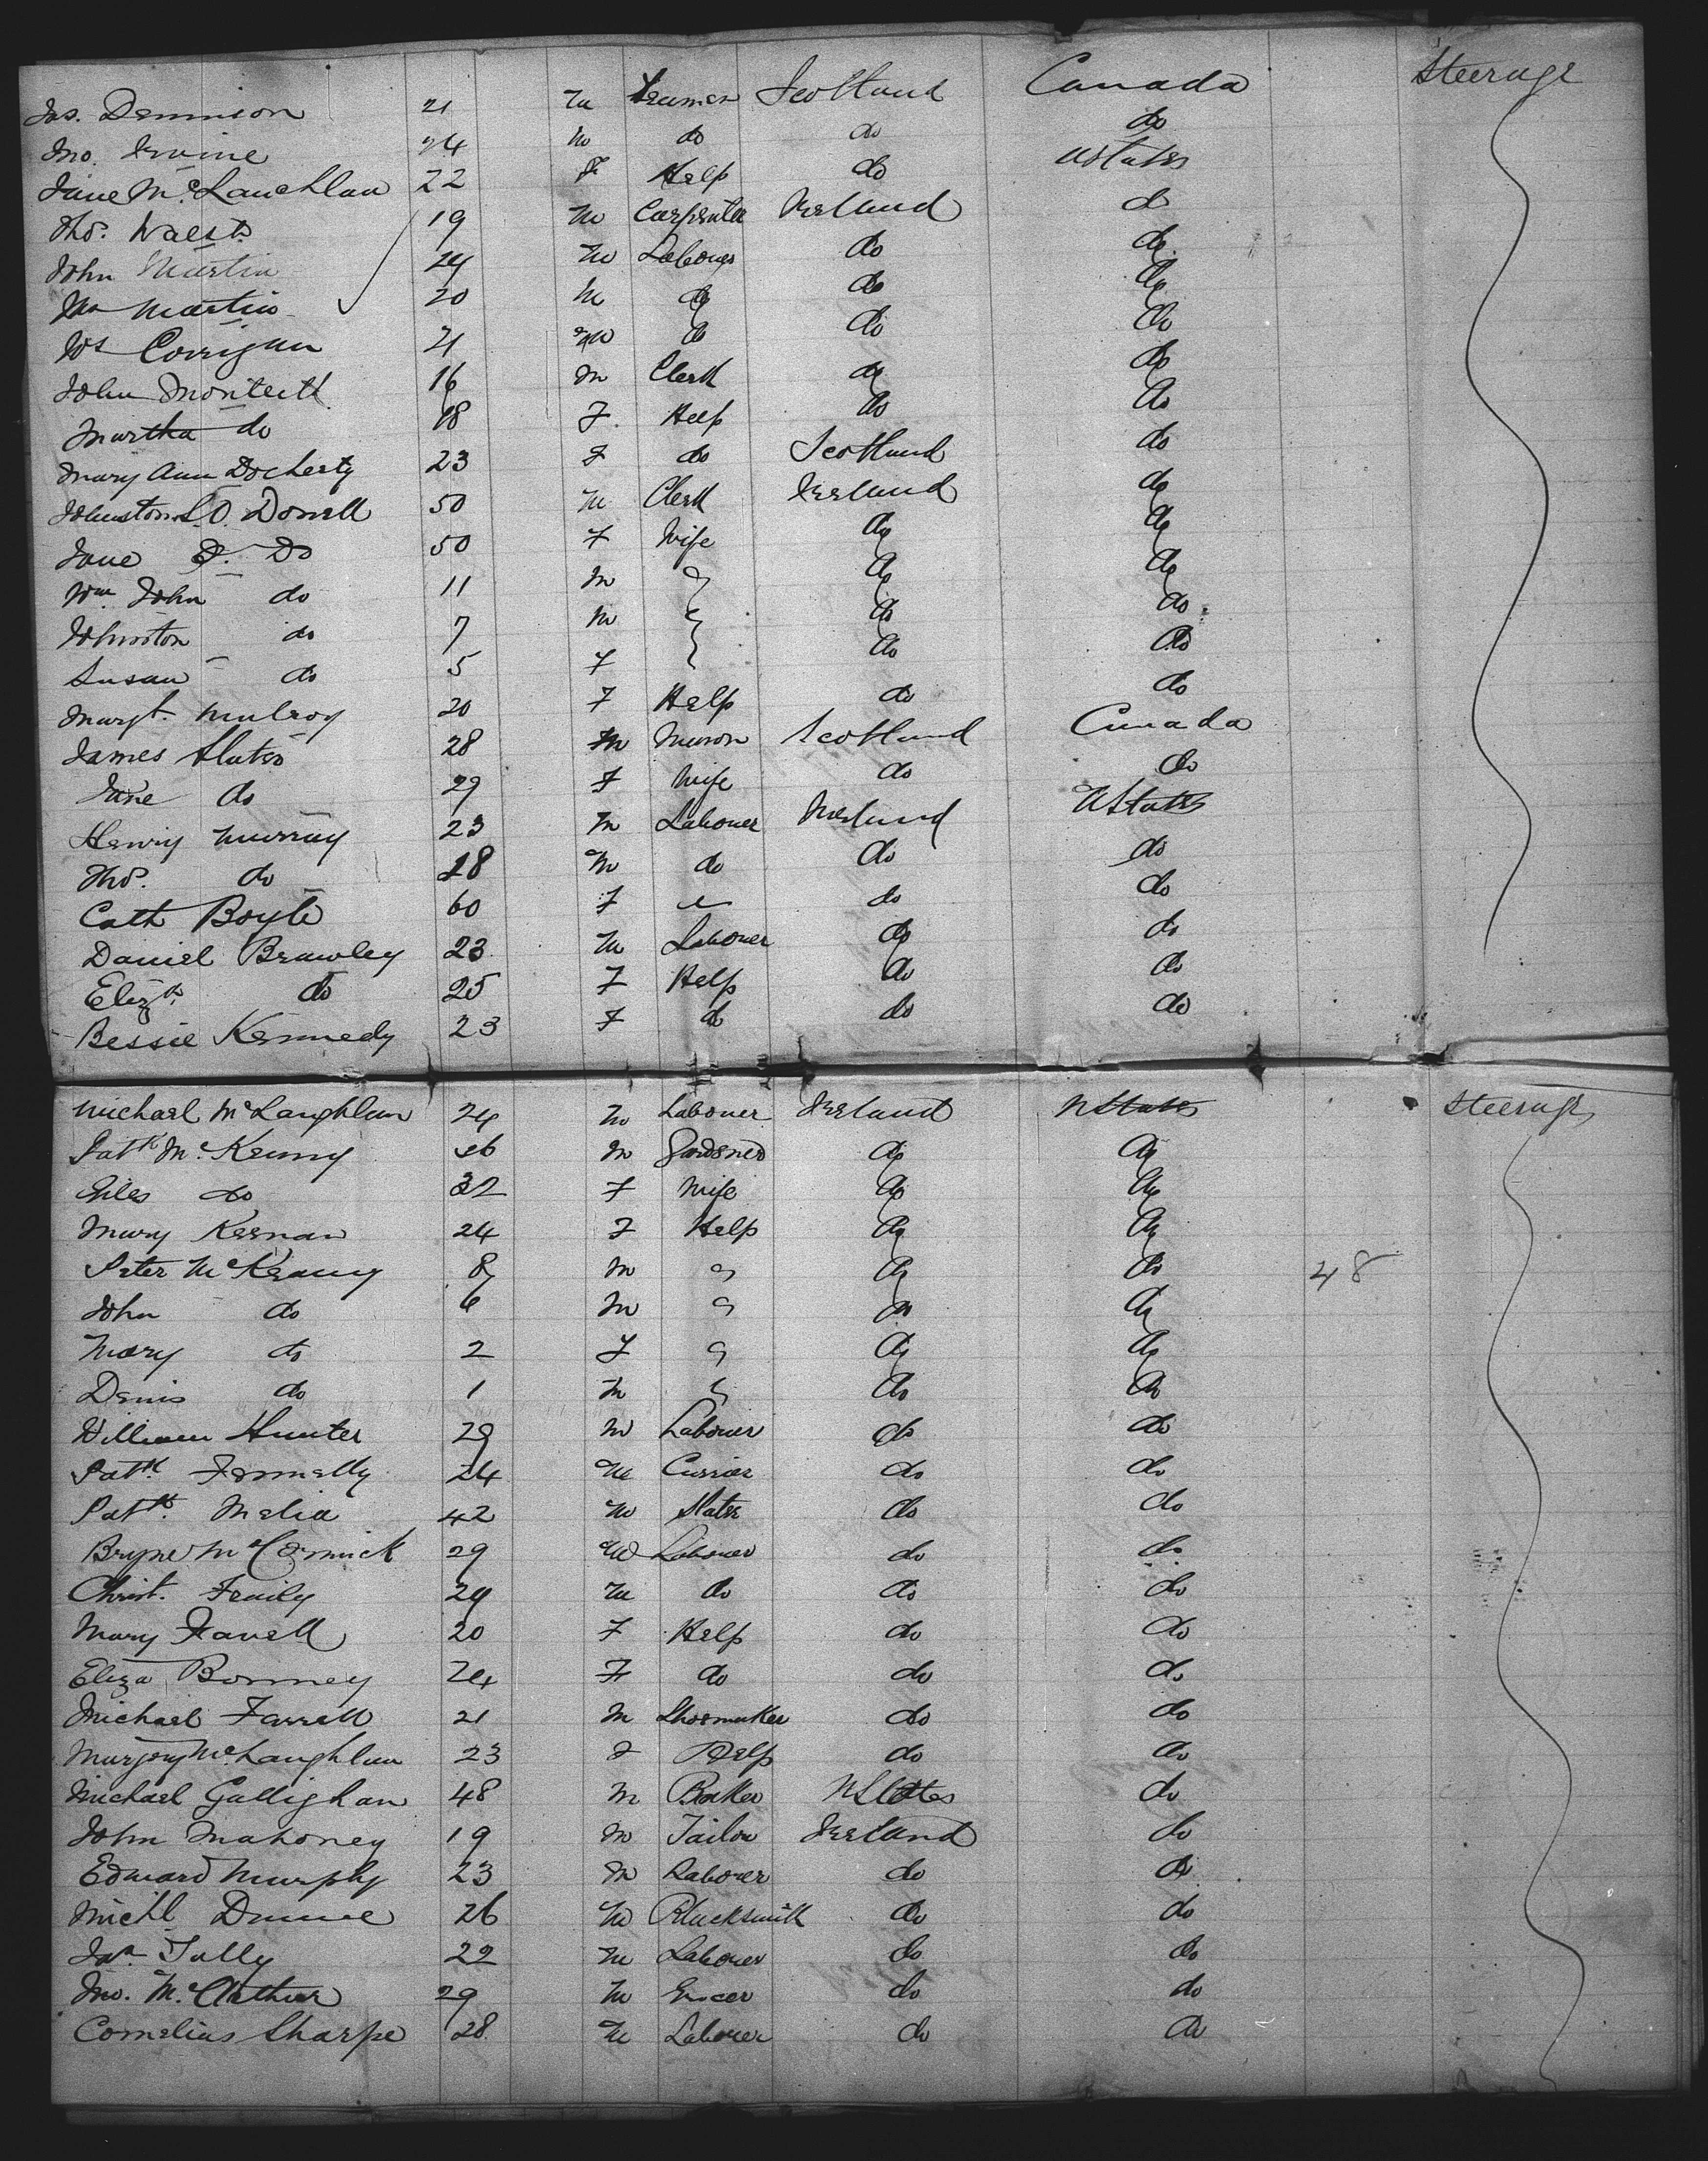 Jas. Dennison 21 m Yeuman Scotland Canada Steerage
Jno. Irvine 24 m do do do
Jane McLauchlan 22 F Help do UStates
Thos. Walsh 19 m Carpenter Ireland do
John Martin 24 m Labourer do do
Martin 20 m do do do
Corrigan 21 m do do do
John Monteith 16 m Clerk do do
Martha do 18 F. Help do do
Mary Ann Docherty 23 F do Scotland do
Johnston O. Donell 50 m Clerk Ireland do
Jane Do 50 F Wife do do
Wm John do 11 m do do
Johnston do 7 m do do
Susan do 5 F do do
Margt. Mulroy 20 F Help do do
James Slater 28 m Mason Scotland Canada
Jane do 29 F Wife do do
Henry Murray 23 m Labouer Ireland UStates
Thos. do 18 m do do do
Cath Boyle 60 F do do
Daniel Brawley 23 m Labouer do do
Elizth. do 25 F Help do do
Bessie Kennedy 23 F do do do
Michael McLaughlan 24 m Labouer Ireland UStates Steerage
Patk McKenny 36 m Gardener do do
Giles do 32 F Wife do do
Mary Keenan 24 F Help do do
Peter McKenny 8 m do do 48
John do 6 m do do
Mary do 2 F do do
Denis do 1 m do do
William Hunter 29 m Labouer do do
Patk. Fennelly 24 m Currier do do
Patk. Melia 42 m Slater do do
Bryne McCormick 29 m Labouer do do
Christ. Fraily 24 m do do do
Mary Favell 20 F Help do do
Eliza Bonney 24 F do do do
Michael Farrell 21 m Shoemaker do do
Marjory McLaughlan 23 F Help do do
Michael Gallighan 48 m Baker UStates do
John Mahoney 19 m Tailor Ireland do
Edward Murphy 23 m Labouer do do
Michl Dunne 26 m Blacksmith do do
Jas. Tully 22 m Labouer do do
Jno. McArthur 29 m Grocer do do
Cornelius Sharpe 28 m Labouer do do